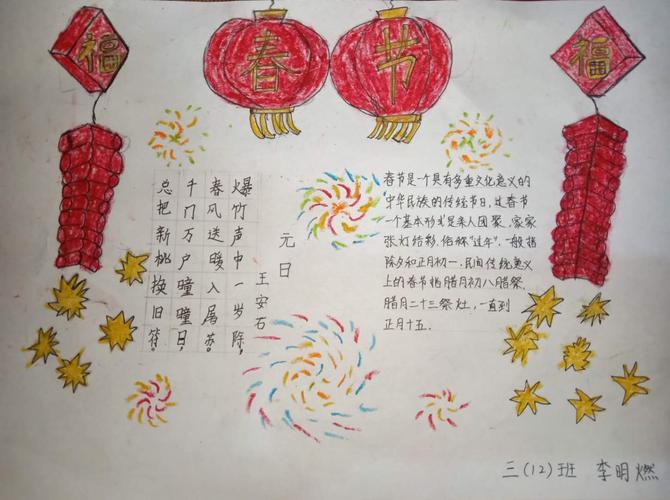 福
春
节
福
元日
王安石
爆竹声中一岁除，
春风送暖入屠苏。
千门万户曈曈日，
总把新桃换旧符。
春节是一个具有多重文化意义的
中华民族的传统节日,过春节
一个基本形式是亲人团聚、家家
张灯结彩,俗称"过年".一般指
除夕和正月初一.民间传统意义
上的春节指腊月初八腊祭.
腊月二十三祭灶,一直到
正月十五.
三(12)班 李明燃